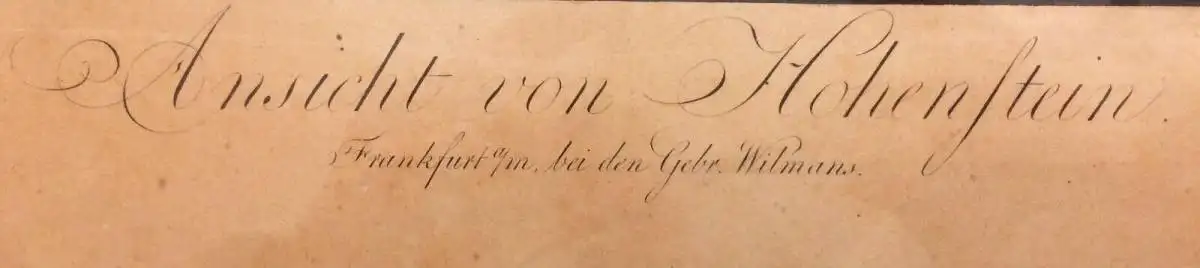 Ansicht von Hohenſtein.
Frankfurt a/m. bei den Gebr. Wilmans.